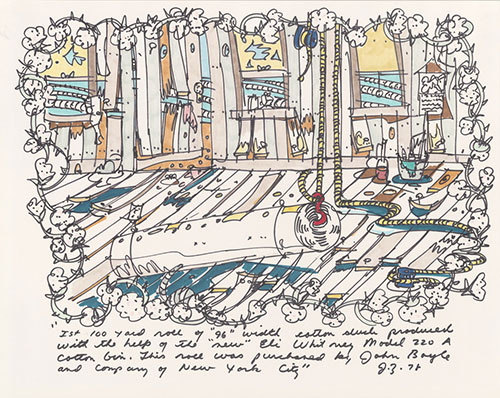 "Ist 100 yard role of "96" width cotton duck produced
with the help of the "new" Eli Whitney Model 220 A
Cotton Gin. This role was purchased by John Boyle
and Company of New York City"